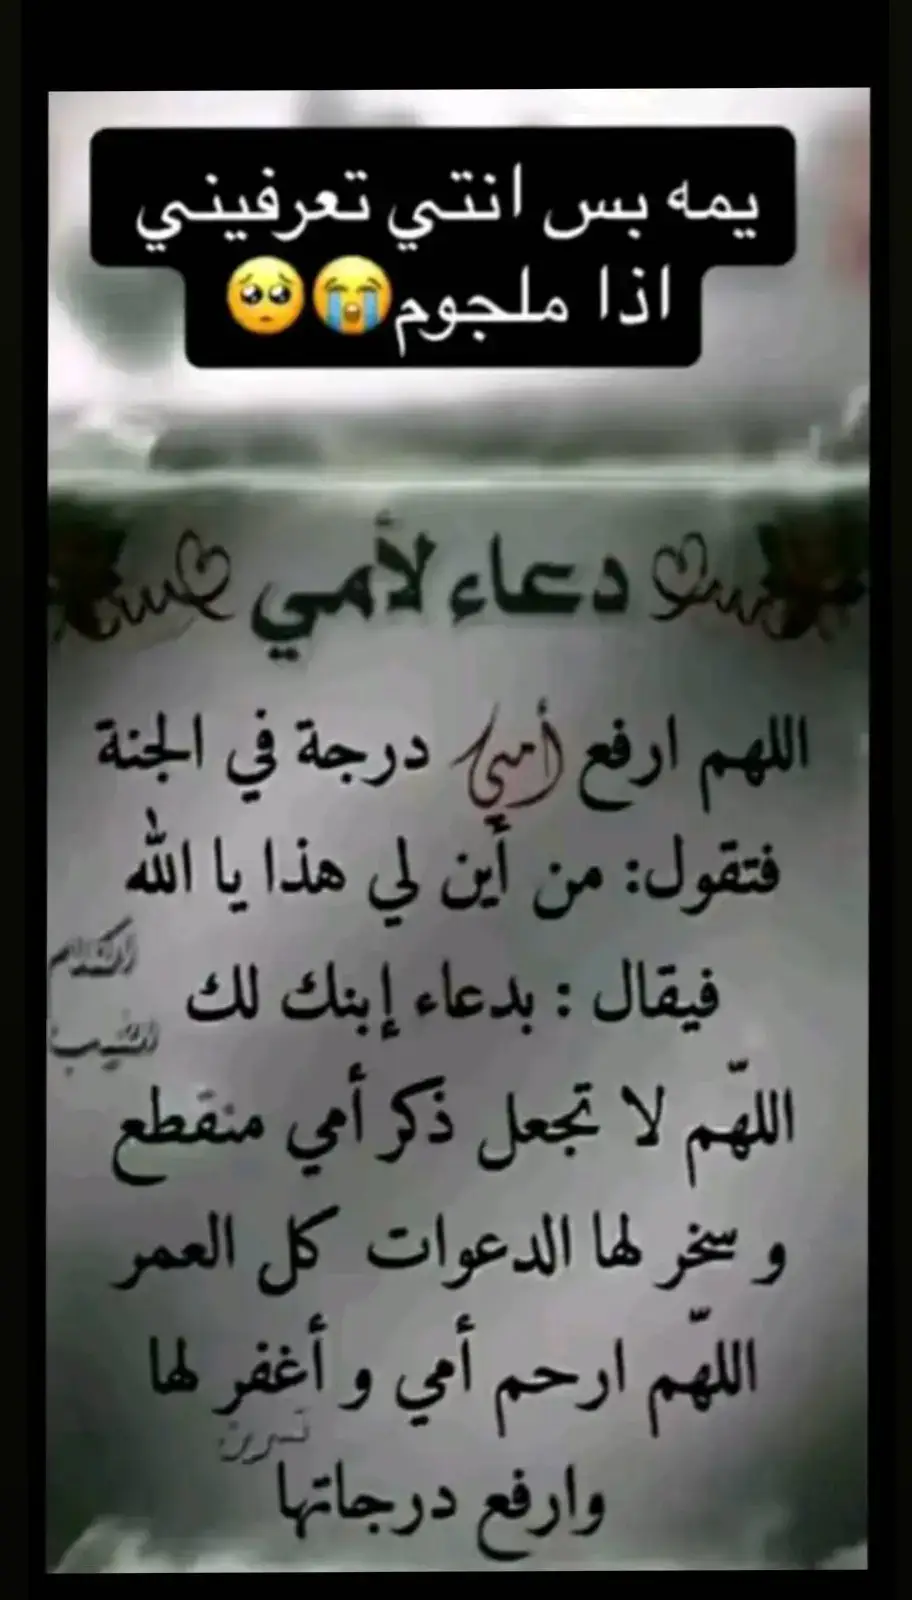 يمه بس انتي تعرفيني
اذا ملجوم😭🥺
دعاء لأمي
اللهم ارفع أمي درجة في الجنة
فتقول: من أين لي هذا يا الله
فيقال : بدعاء إبنك لك
اللّهم لا تجعل ذكر أمي منقطع
و سخر لها الدعوات كل العمر
اللّهم ارحم أمي و أغفر لها
وارفع درجاتها